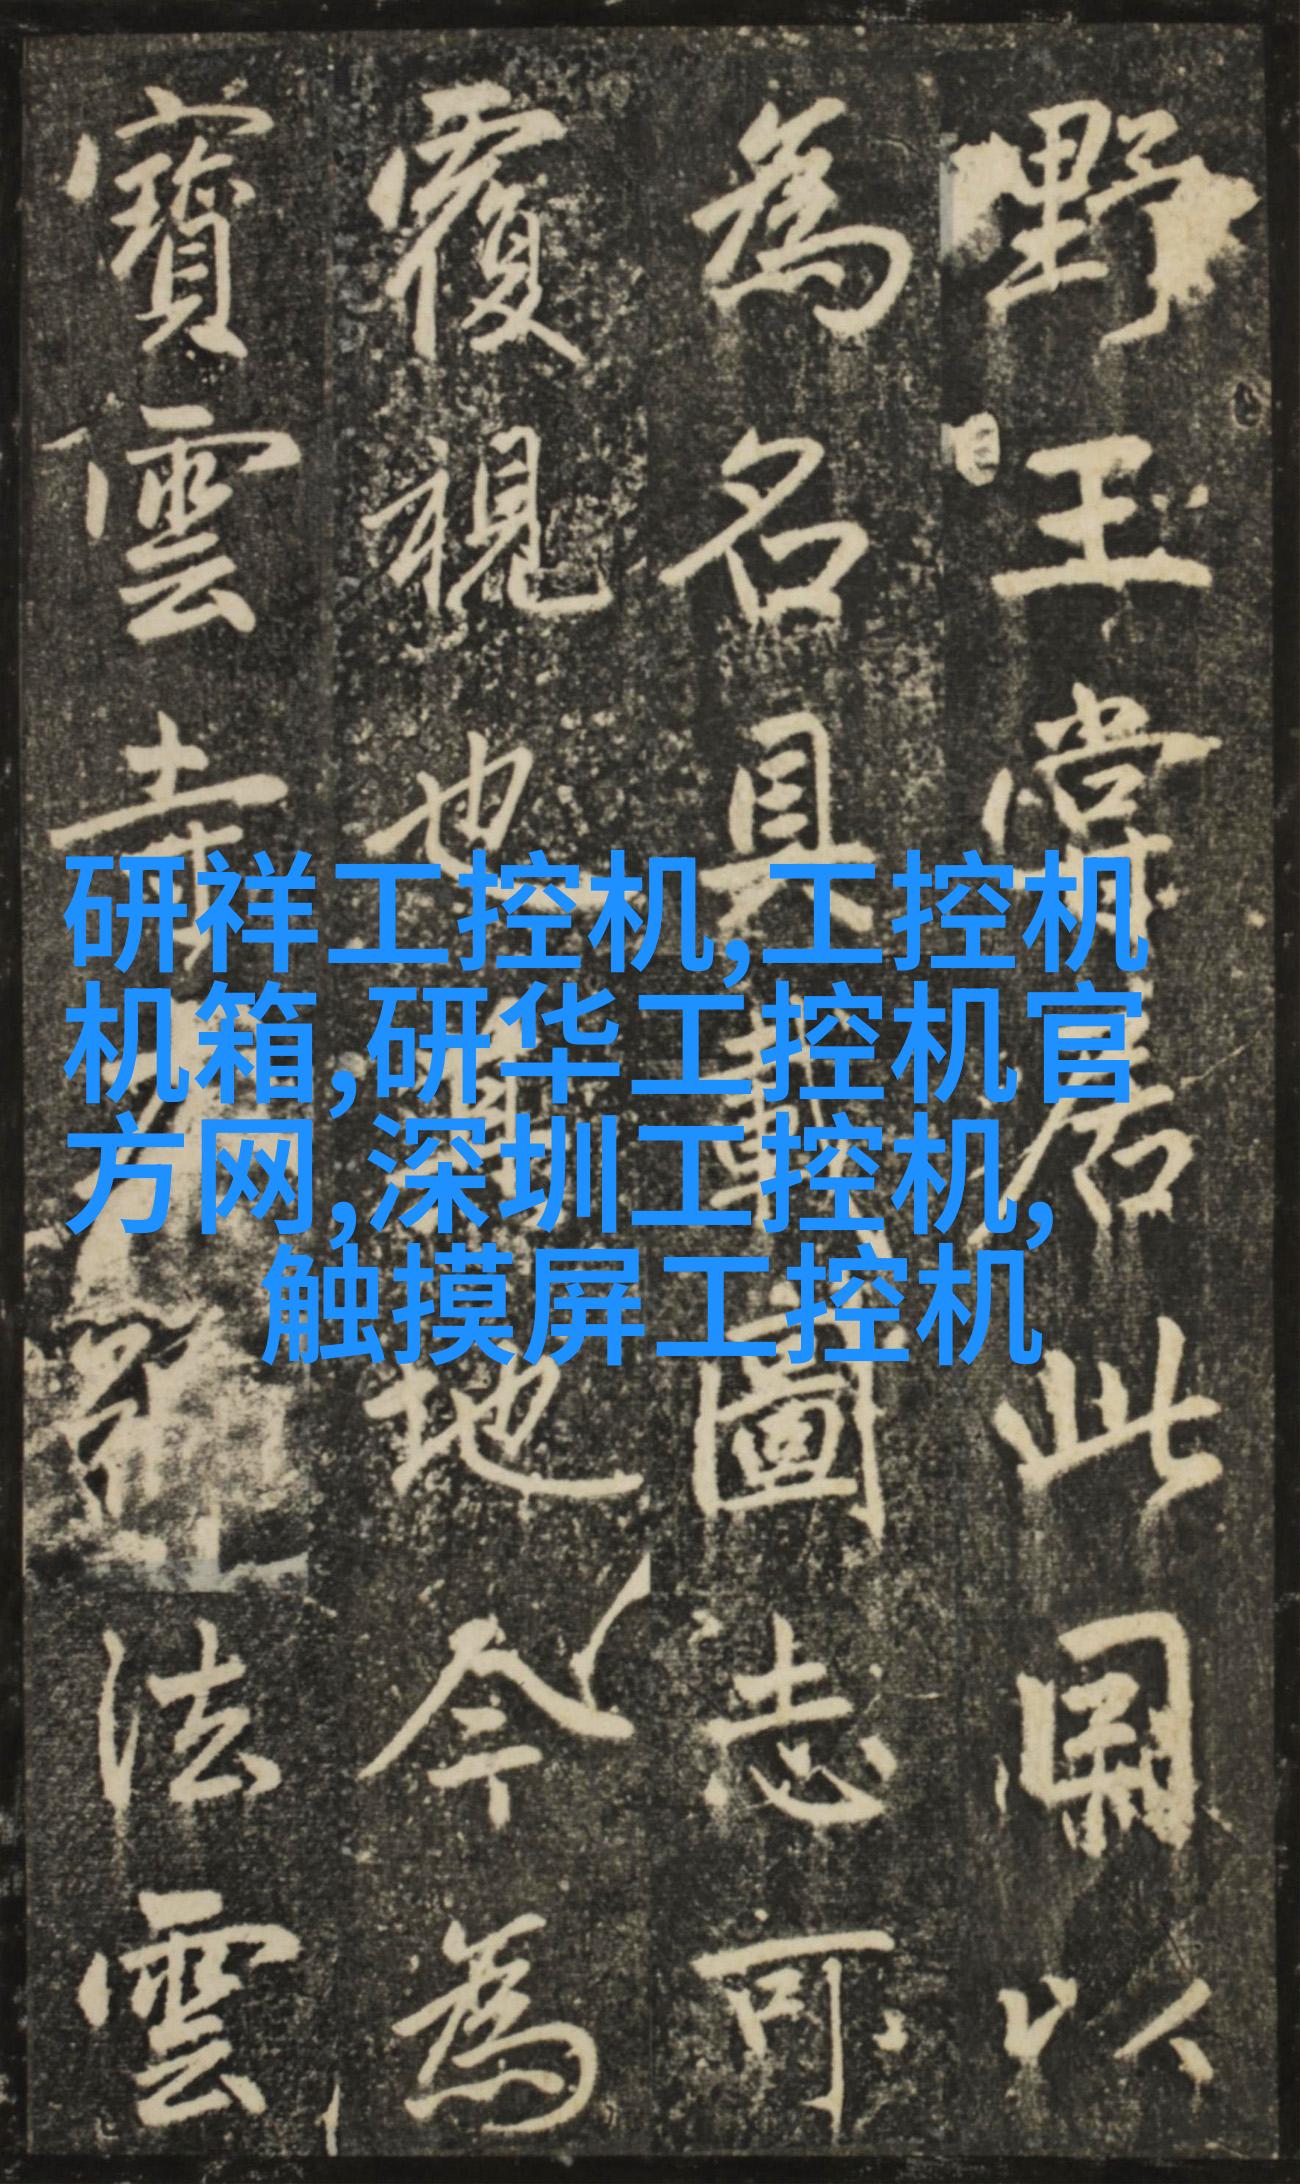 野王嘗居此因以
為名具載圖志可
覆視也其地今為
寶雲寺
法雲
研祥工控机,工控机
机箱,研华工控机官
方网,深圳工控机,
触摸屏工控机